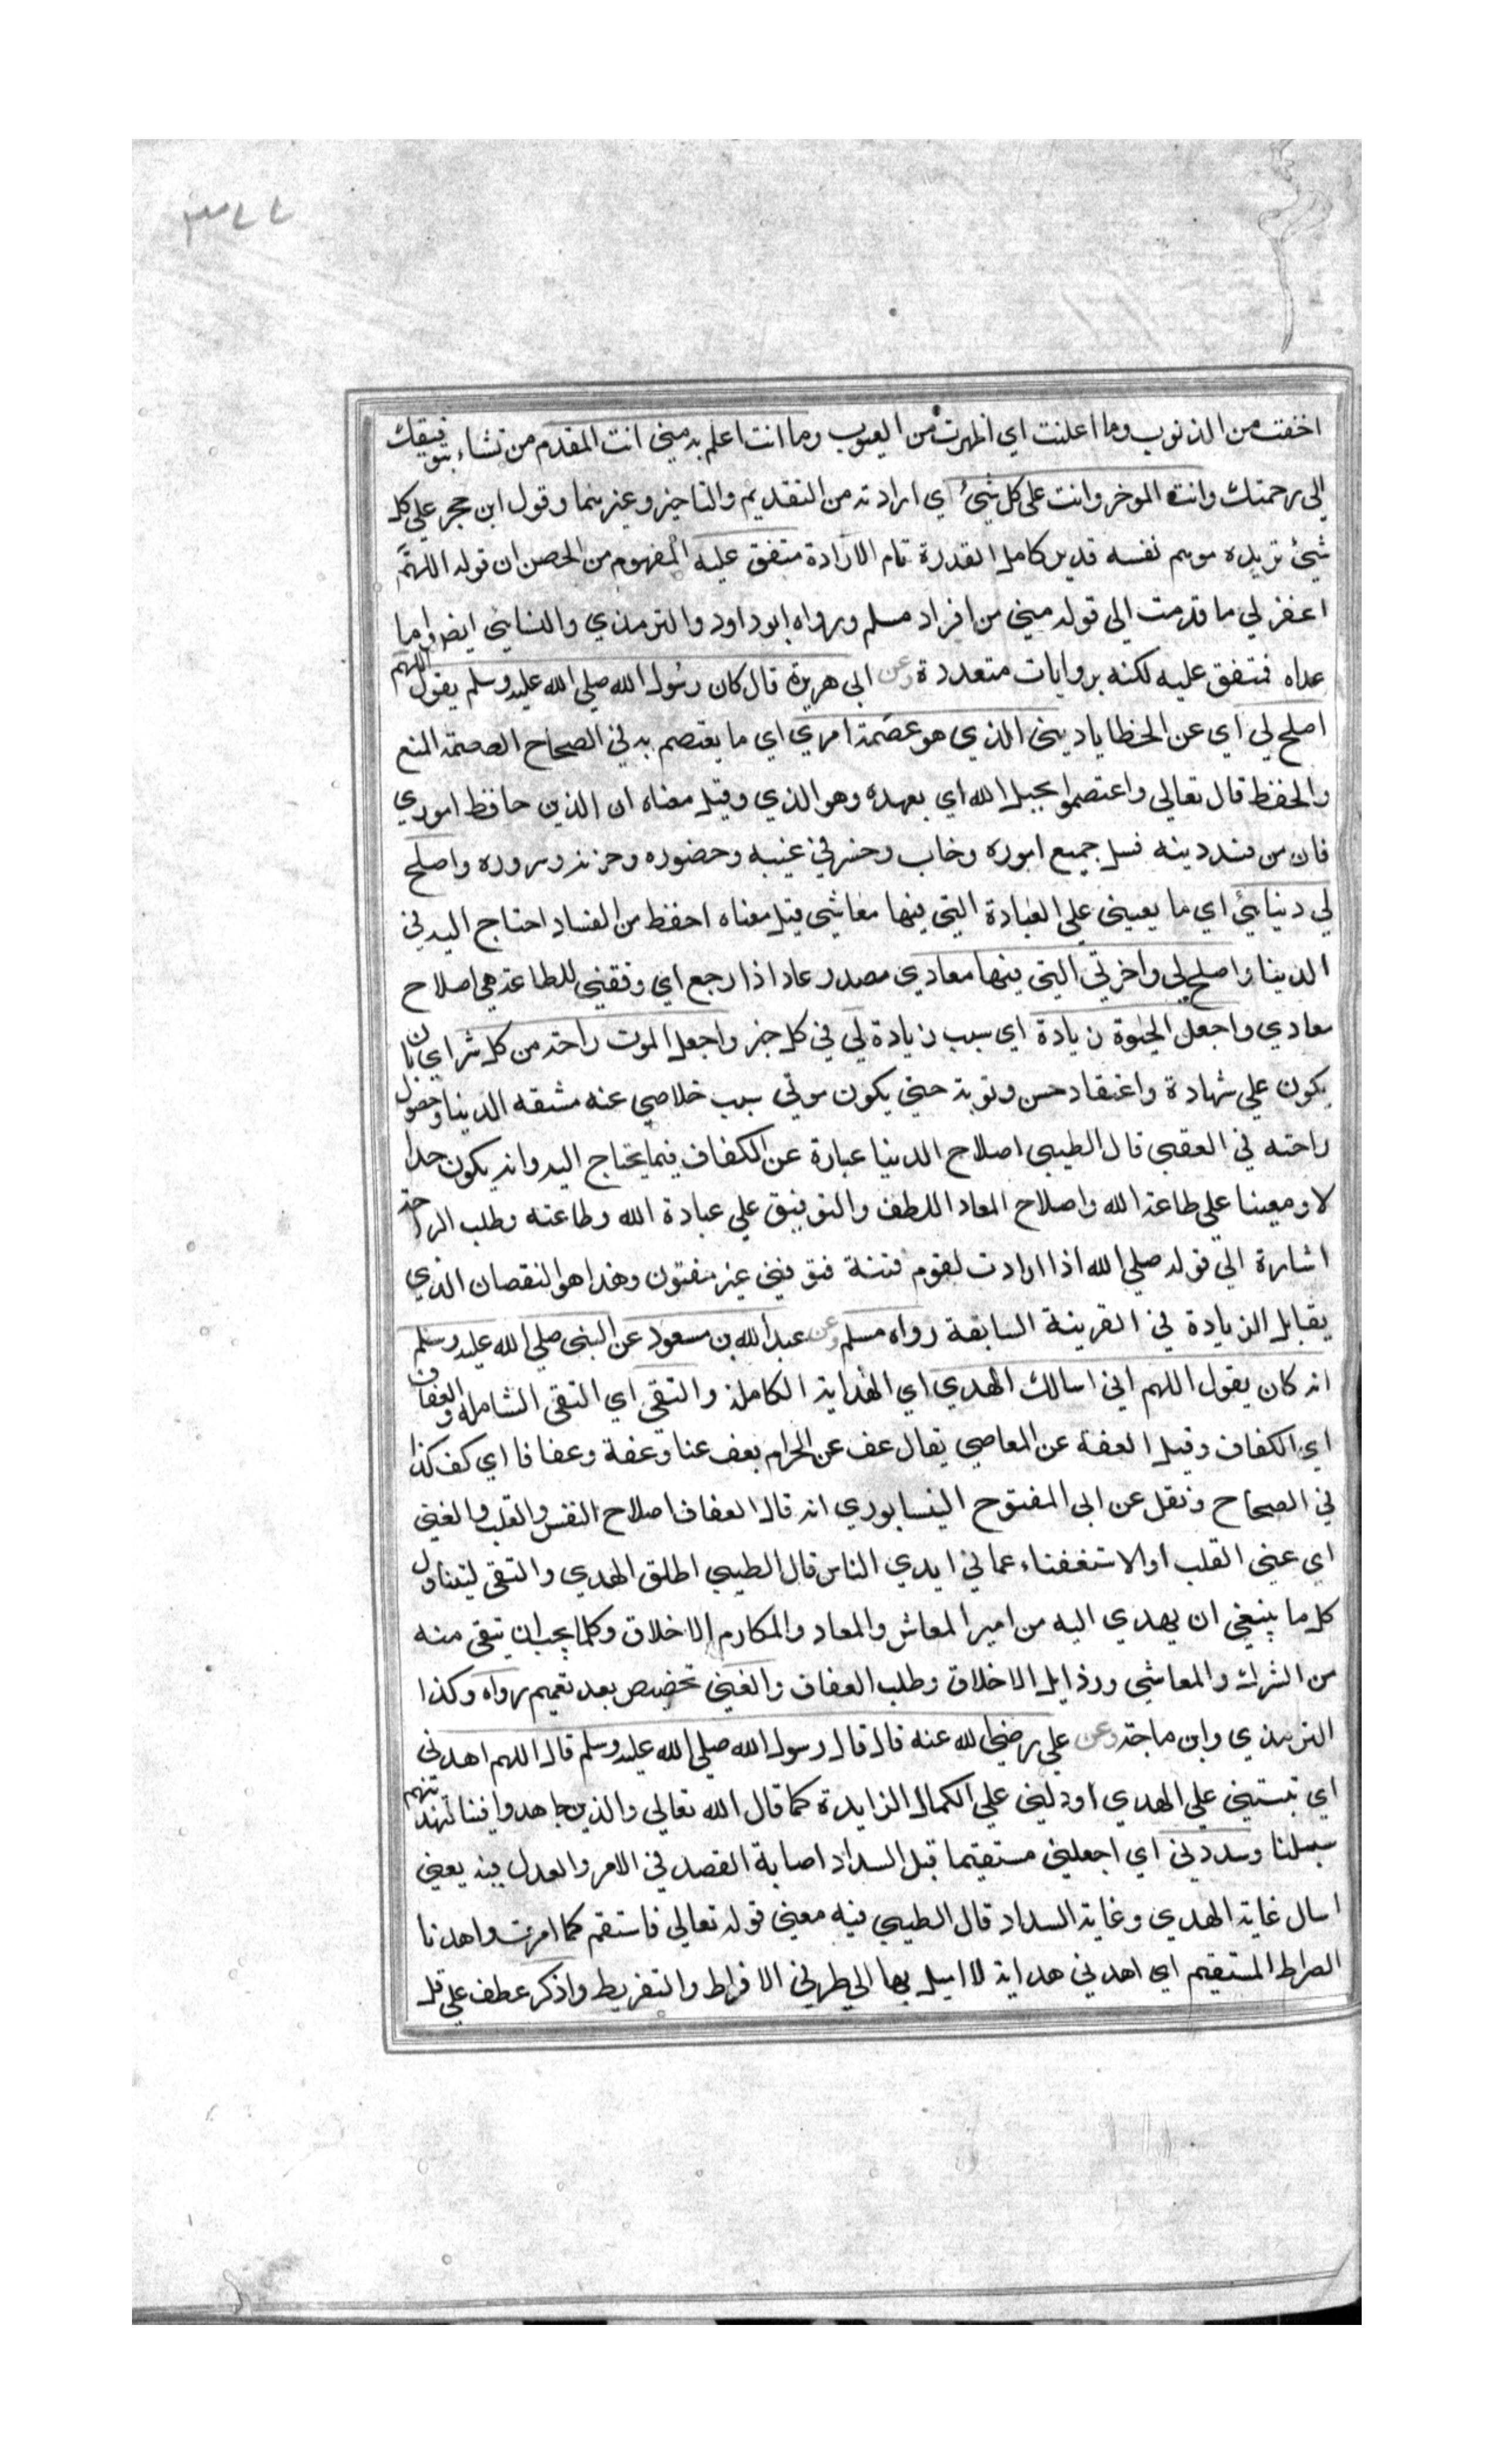 ٣٧٧
اخفت من الذنوب وما اعلنت اي اظهرت من العيوب وما انت اعلم به مني انت المقدم من تشاء بتوفيقك
الى رحمتك وانت الموخر وانت على كل شيئ اي ارادته من التقديم والتاخير وغيرهما وقول ابن حجر علي كل
شيئ تريده موهم نفسه قدير كامل القدرة تام الارادة متفق عليه المفهوم من الحصن ان قوله اللهم
اغفر لي ما قدمت الي قوله مني من افراد مسلم ورواه ابو داود والترمذي والنسائي ايضا واما
عداه فمتفق عليه لكنه بروايات متعددة وعن ابي هريرة قال كان رسول الله صلي الله عليه وسلم يقول اللهم
اصلح لي اي عن الخطايا ديني الذي هو عصمة امري اي ما يعتصم به في الصحاح العصمة المنع
والحفظ قال تعالي واعتصموا بحبل الله اي بعهده وهو الذي وقيل معناه ان الذين حافظ اموري
فان من فسد دينه فسد جميع اموره وخاب وخسر في غيبه وحضوره وحزنه وسروره واصلح
لي دنيائي اي ما يعينني علي العبادة التي فيها معاشي قيل معناه احفظ من الفساد احتاج اليه في
الدنيا واصلح لي واخرتي التي فيها معادي مصدر عاد اذا رجع اي وفقني للطاعة هي اصلاح
معادي واجعل الحيوة زيادة اي سبب زيادة لي في كل خير واجعل الموت راحة من كل شر اي بان
يكون علي شهادة واعتقاد حسن وتوبة حتي يكون موتي سبب خلاصي عنه مشقه الدنيا وحصول
راحته في العقبي قال الطيبي اصلاح الدنيا عبارة عن الكفاف فيما يحتاج اليه وانه يكون حلا
لا ومعينا علي طاعة الله واصلاح المعاد اللطف والتوفيق علي عبادة الله وطاعته وطلب الراحة
اشارة الي قوله صلي الله اذا اردت لقوم فتنة فتوفني غير مفتون وهذا هو النقصان الذي
يقابل الزيادة في القرينة السابقة رواه مسلم وعن عبد الله بن مسعود عن النبي صلي الله عليه وسلم
انه كان يقول اللهم اني اسالك الهدي اي الهداية الكاملة والتقي اي التقي الشاملة والعفاف
اي الكفاف وقيل العفة عن المعاصي يقال عف عن الحرام يعف عفا وعفة وعفافا اي كف كذا
في الصحاح ونقل عن ابي المفتوح النيسابوري انه قال العفاف اصلاح النفس والقلب والغني
اي غني القلب او الاستغناء عما في ايدي الناس قال الطيبي اطلق الهدي والتقي ليتناول
كل ما ينبغي ان يهدي اليه من امر المعاش والمعاد والمكارم الاخلاق وكلما يجب ان يتقي منه
من الشرك والمعاشي ورذايل الاخلاق وطلب العفاف والغني تخصيص بعد تعميم رواه وكذا
الترمذي وابن ماجة وعن علي رضي الله عنه قال قال رسول الله صلي الله عليه وسلم قال اللهم اهدني
اي ثبتني علي الهدي او دلني علي الكمال الزايدة كما قال الله تعالي والذين جاهدوا فينا لنهدينهم
سبلنا وسددني اي اجعلني مستقيما قبل السداد اصابة القصد في الامر والعدل فيه يعني
اسال غاية الهدي وغاية السداد قال الطيبي فيه معني قوله تعالي فاستقم كما امرت واهدنا
الصراط المستقيم اي اهدني هداية لا اميل بها الي طرفي الافراط والتفريط واذكر عطف علي قل